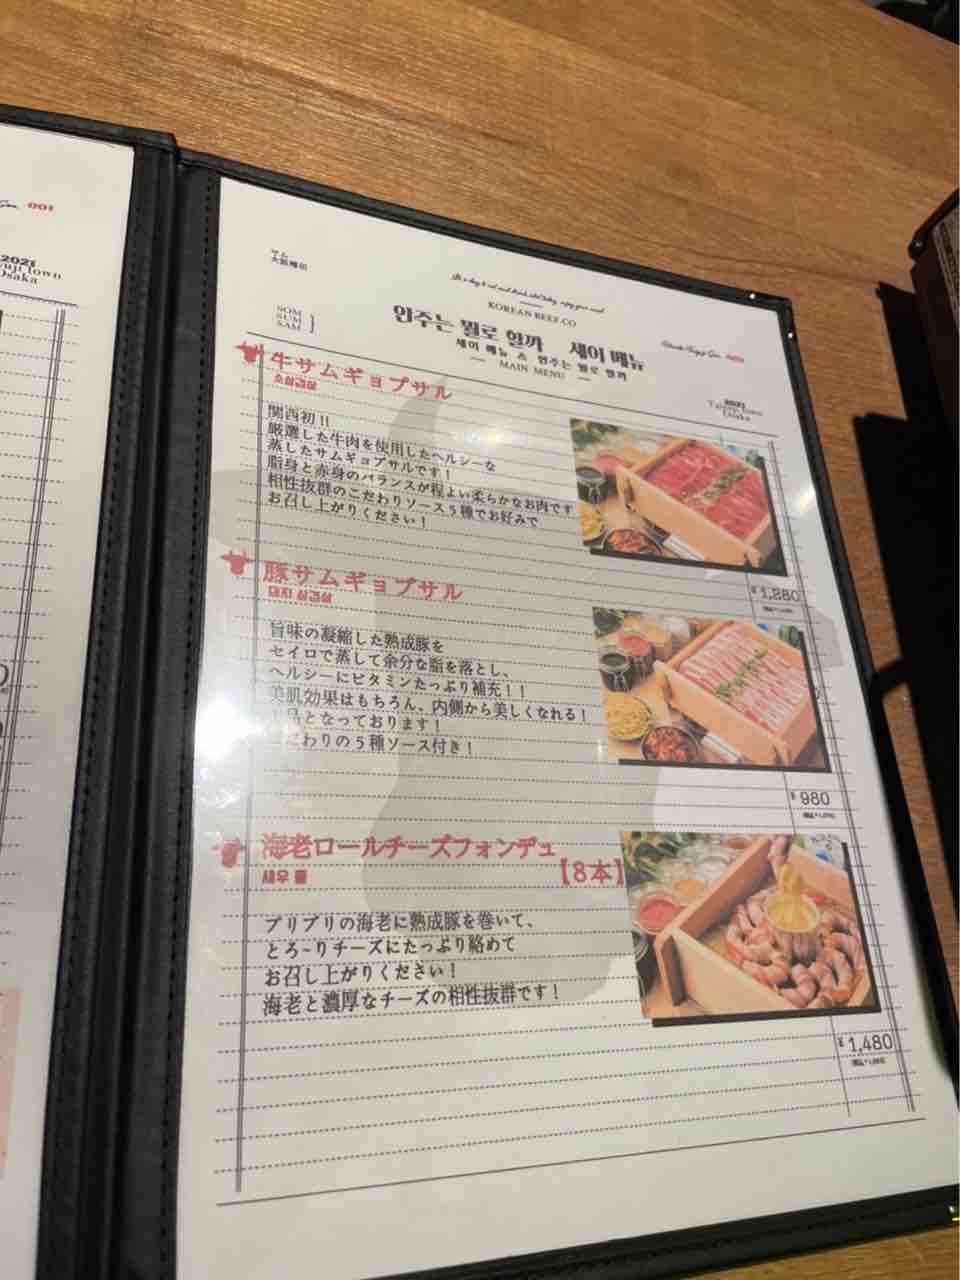 -001
2021
Osaka
大阪梅田
KOREAN BEEF.CO
SOM
SUM
SAM
안주는 뭘로 할까 세이 메뉴
세이 메뉴 & 안주는 뭘로 할까
MAIN MENU
2021
Osaka
牛サムギョプサル
소삼겹살
関西初!!
厳選した牛肉を使用したヘルシーな
蒸したサムギョプサルです!
脂身と赤身のバランスが程よい柔らかなお肉です
相性抜群のこだわりソース5種でお好みで
お召し上がりください!
¥1,280
豚サムギョプサル
돼지 삼겹살
旨味の凝縮した熟成豚を
セイロで蒸して余分な脂を落とし、
ヘルシーにビタミンたっぷり補充!!
美肌効果はもちろん、内側から美しくなれる!
品となっております!
だわりの5種ソース付き!
¥980
海老ロールチーズフォンデュ
【8本】
새우 롤
プリプリの海老に熟成豚を巻いて、
とろ~りチーズにたっぷり絡めて
お召し上がりください!
海老と濃厚なチーズの相性抜群です!
¥1,480